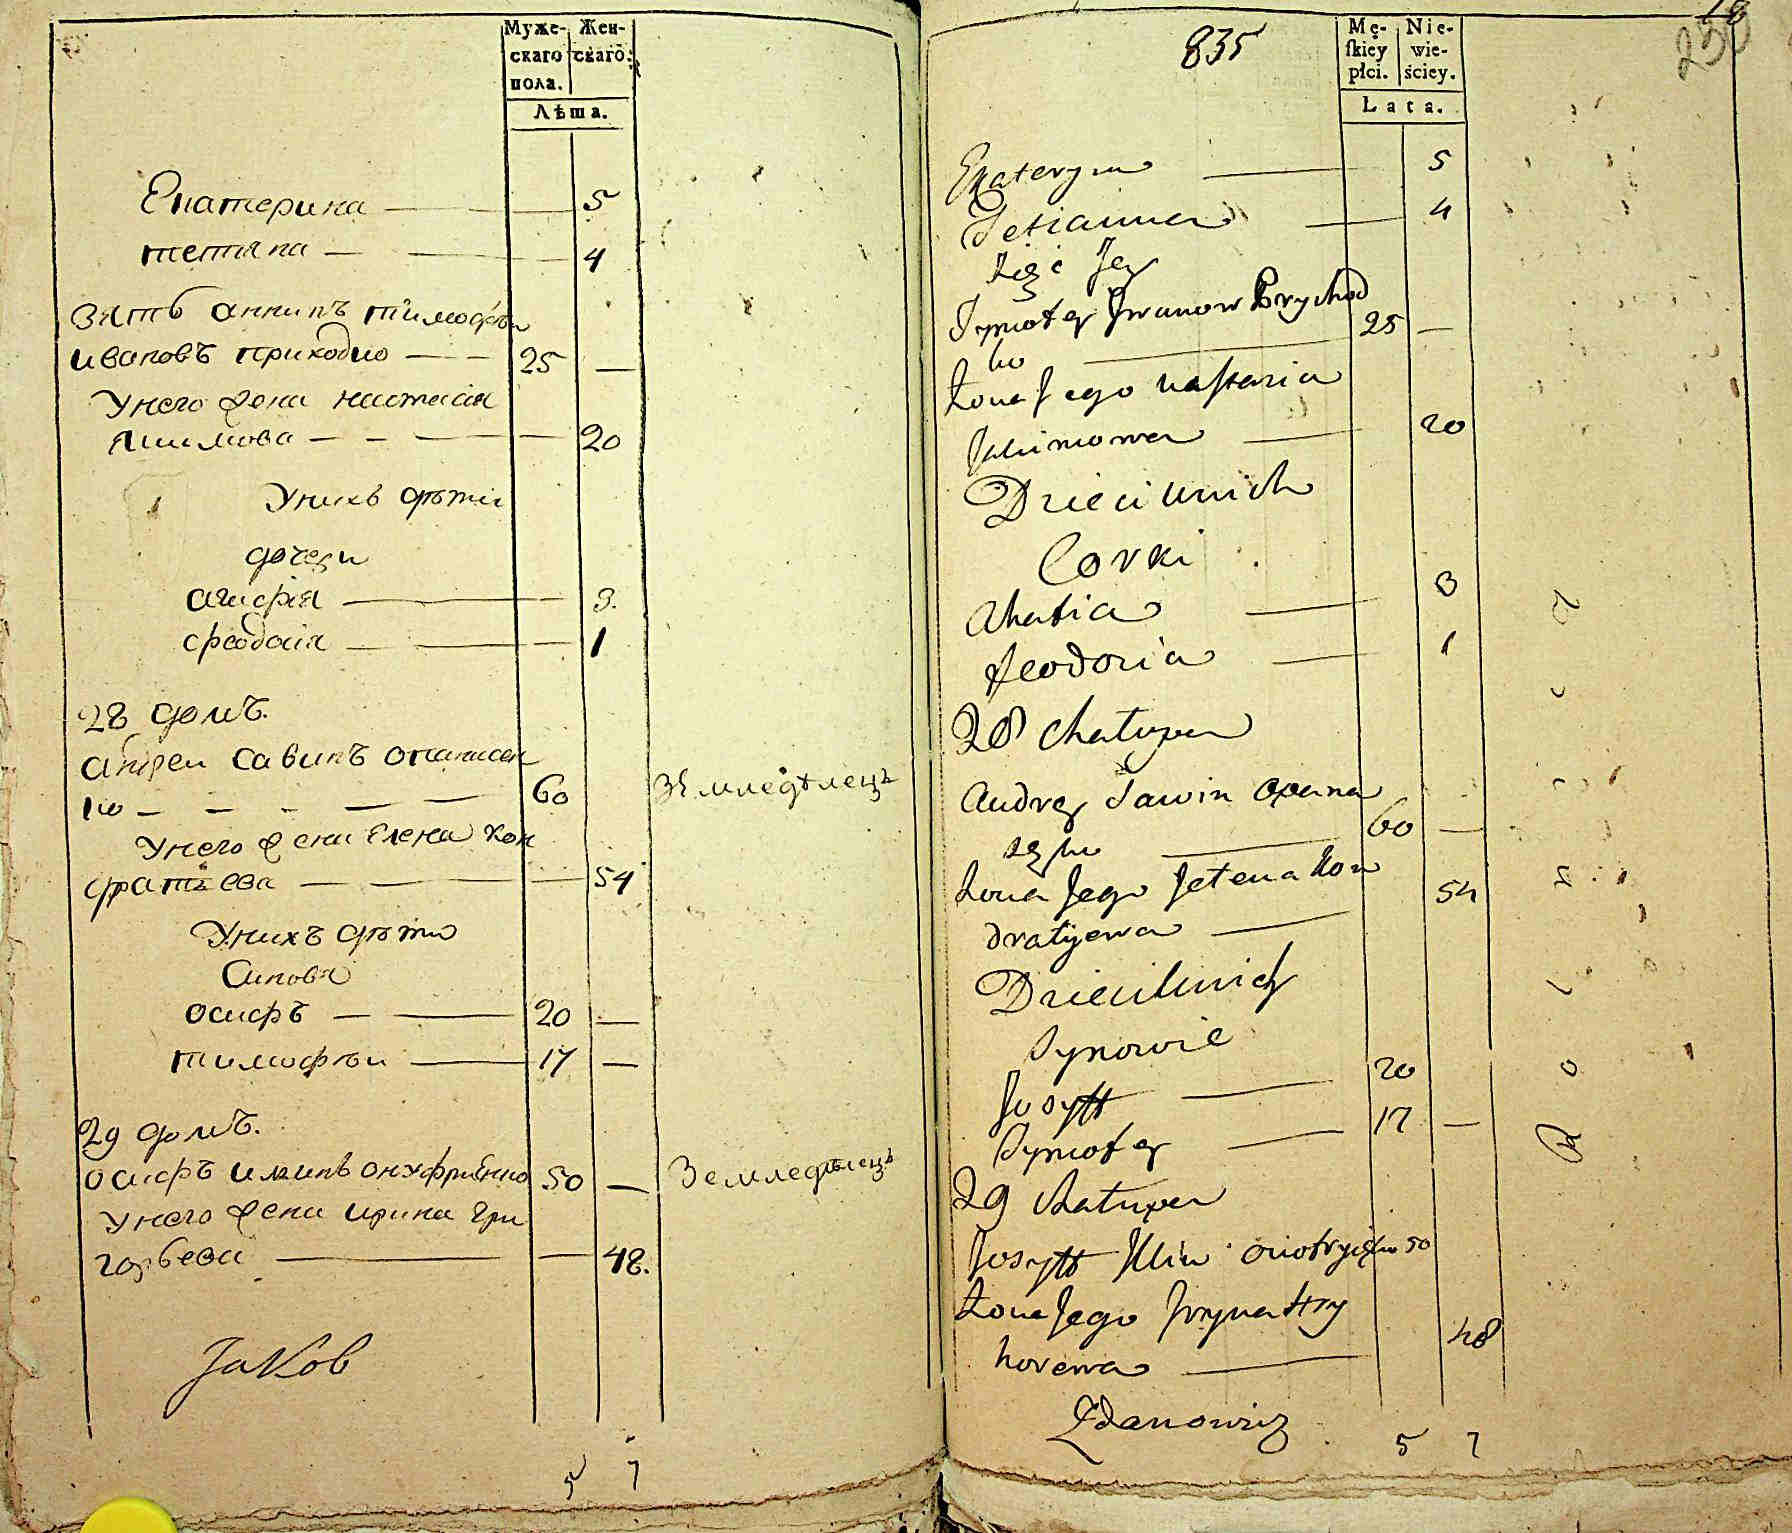 Муже- Жен-
скаго скаго:
пола.
Лѣта.
Екатерина 5
тетяна 4
Зять аннинъ тимофѣи
ивановъ приходко 25 —
У него жена настасия
якимова 20
У нихъ дѣти
дочери
агафия 3.
феодосия 1
28 домъ.
андреи савинъ опанасен
ко 60 Земледѣлецъ
У него жена Елена кон
дратиева 54
У нихъ дѣти
Синовя
осифъ 20 —
тимофѣи 17 —
29 домъ.
осифъ илинъ онуфриенко 50 — Земледѣлецъ
У него жена ирина гри
горьева 48.
Jakob
5 7
835
Mę- Nie-
skiey wie-
płci. ściey.
Lata.
Ekateryna 5
Tetianna 4
Zięć Jey
Tymotey Jwanow Prychod
ko 25 —
Żona Jego nastazia
Jakimowa 20
Dzieci unich
Corki
Ahafia 3
Feodozia 1
28 Chatupa
Andrey Sawin Opana
seyko 60 —
Żona Jego Jelena Kon
dratyewa 54
Dzieci Unich
Synowie
Josyff 20
Tymotey 17 —
29 Chatupa
Josyff Jllin onofryięko 50
Żona Jego Jryna Hry
horewa 48
Zdanowicz
5 7